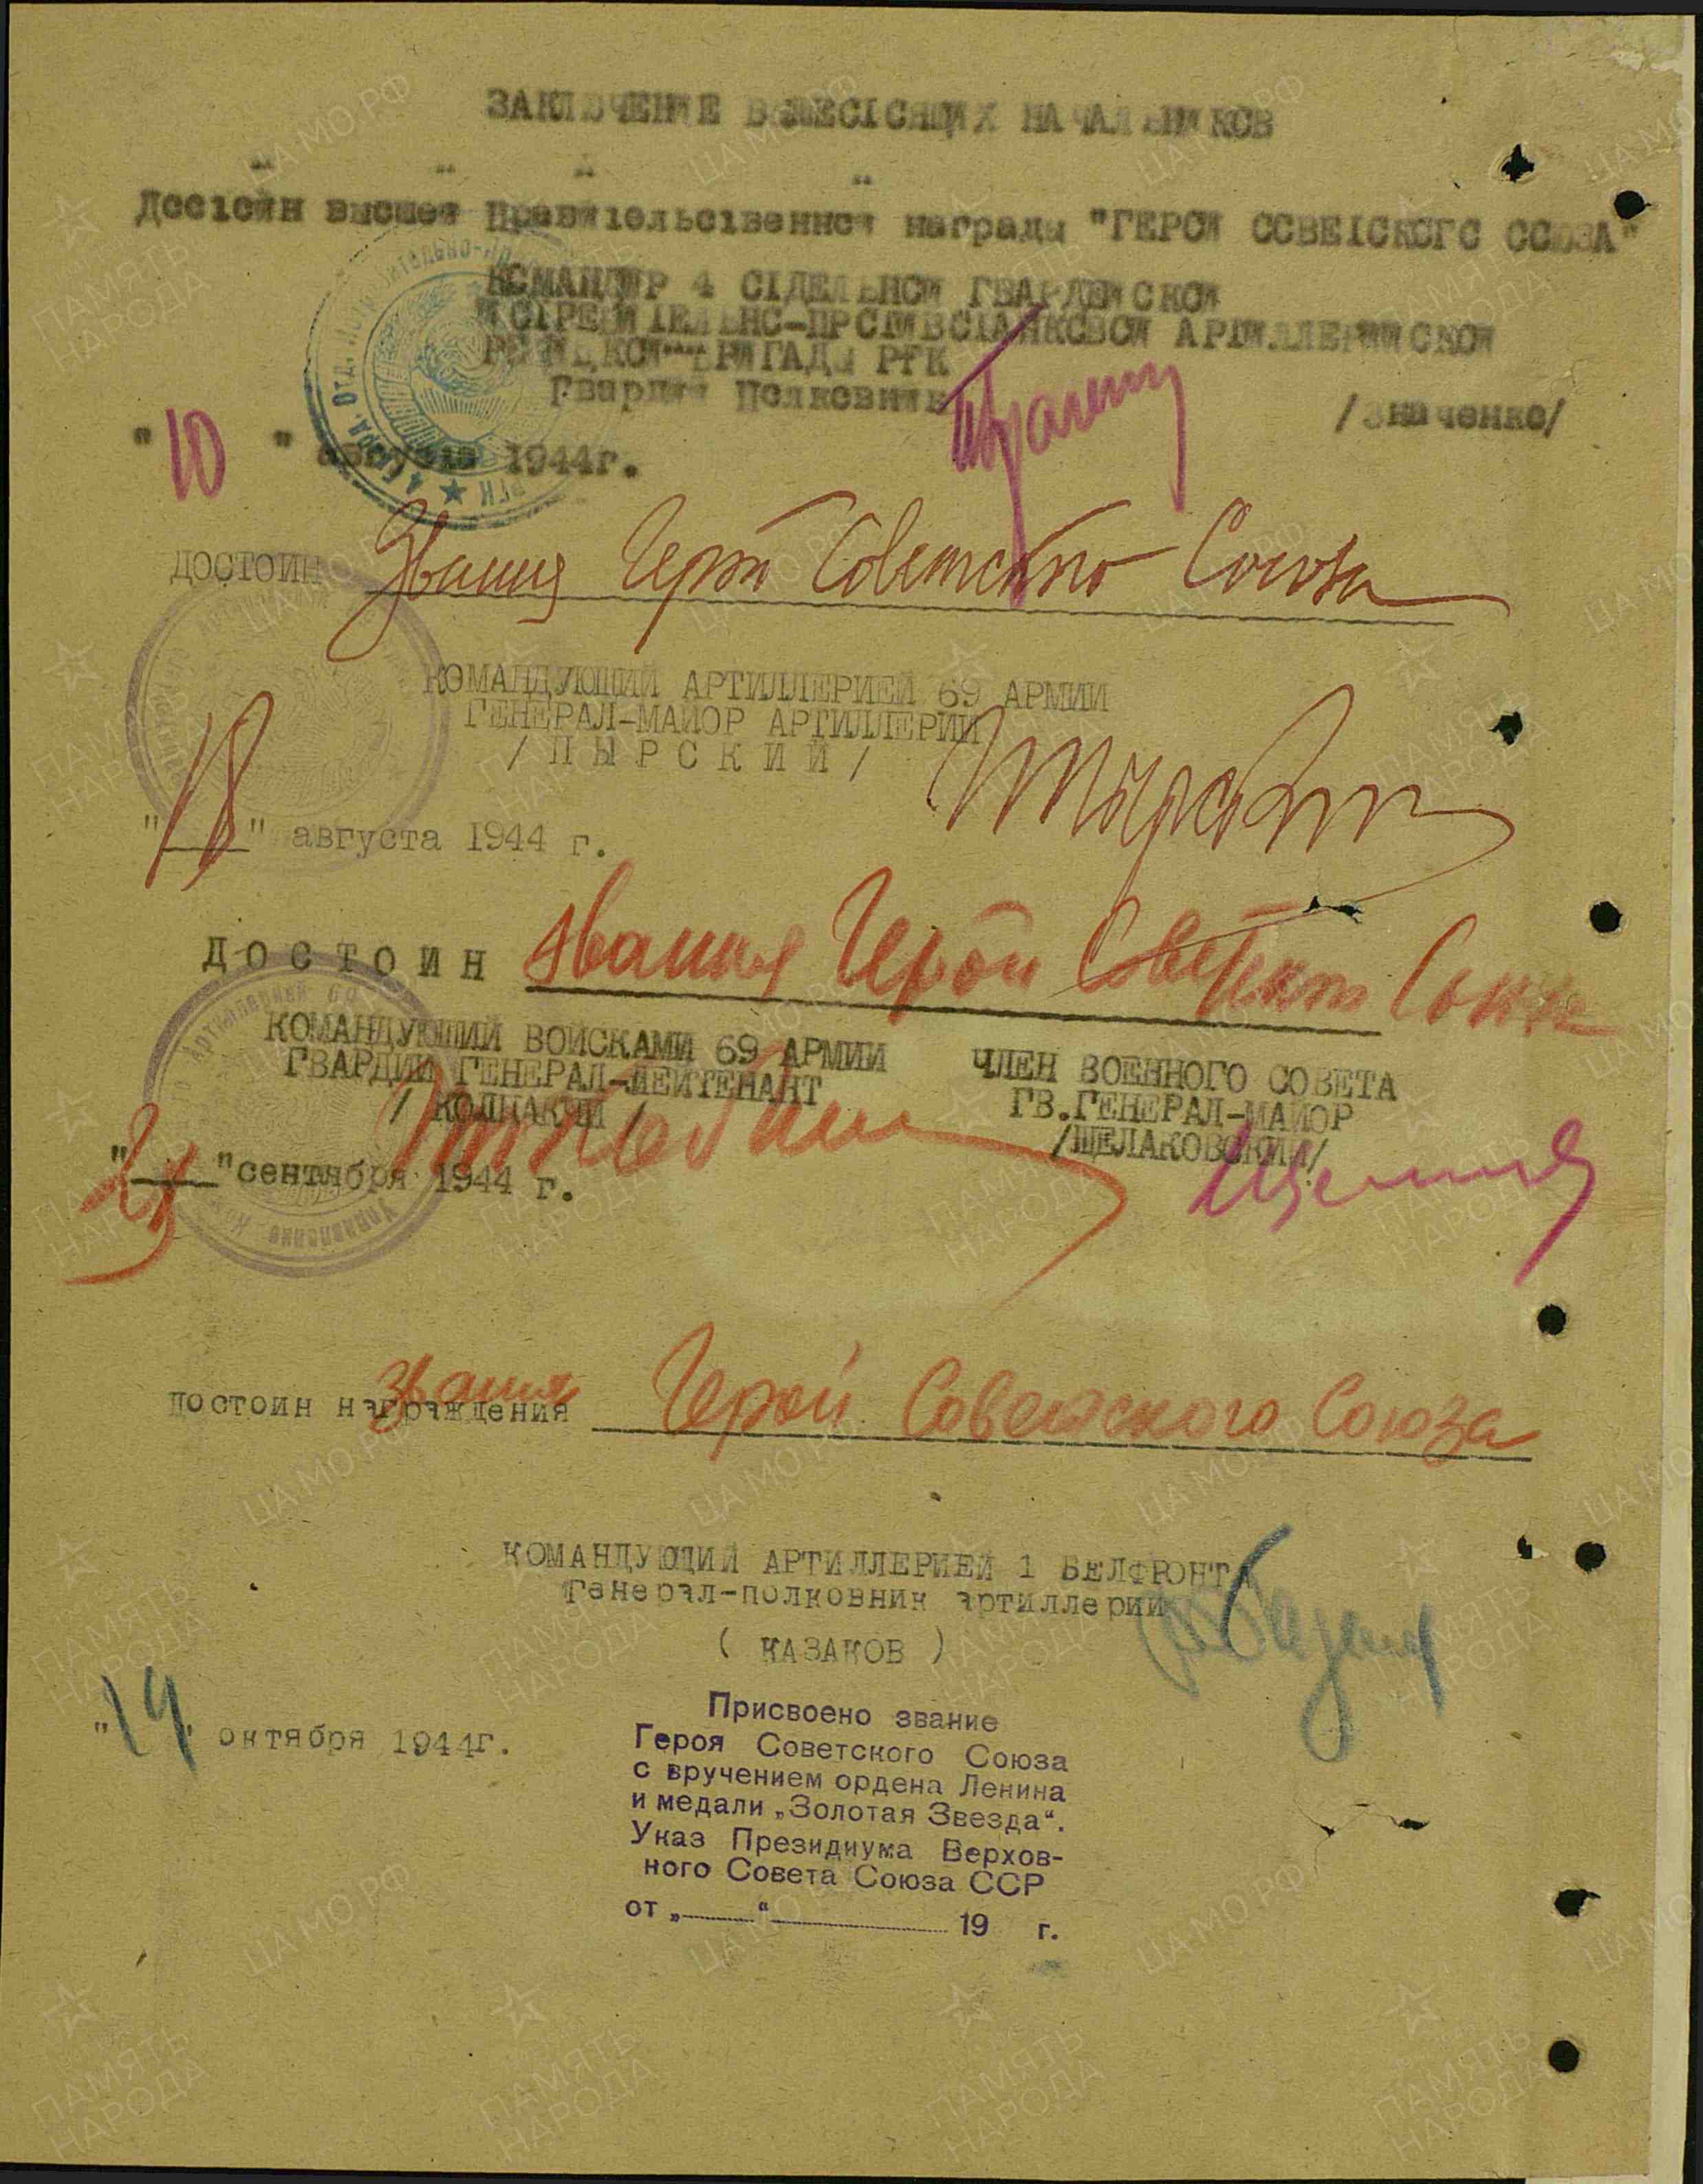 ЗАКЛЮЧЕНИЕ ВЫШЕСТОЯЩИХ НАЧАЛЬНИКОВ
Достоин высшей Правительственной награды "ГЕРОЙ СОВЕТСКОГО СОЮЗА"
КОМАНДИР 4 ОТДЕЛЬНОЙ ГВАРДЕЙСКОЙ
ИСТРЕБИТЕЛЬНО-ПРОТИВОТАНКОВОЙ АРТИЛЛЕРИЙСКОЙ
БРИГАДЫ РГК
Гвардии Полковник /Зраженко/
"10" августа 1944г.
ДОСТОИН Звания Герой Советского Союза
КОМАНДУЮЩИЙ АРТИЛЛЕРИЕЙ 69 АРМИИ
ГЕНЕРАЛ-МАЙОР АРТИЛЛЕРИИ
/ПЫРСКИЙ/
"18" августа 1944 г.
ДОСТОИН звания Герой Советского Союза
КОМАНДУЮЩИЙ ВОЙСКАМИ 69 АРМИИ ЧЛЕН ВОЕННОГО СОВЕТА
ГВАРДИИ ГЕНЕРАЛ-ЛЕЙТЕНАНТ ГВ.ГЕНЕРАЛ-МАЙОР
/КОЛПАКЧИ/ /ЩЕЛАКОВСКИЙ/
"" сентября 1944 г.
звания
достоин награждения Герой Советского Союза
КОМАНДУЮЩИЙ АРТИЛЛЕРИЕЙ 1 БЕЛФРОНТА
Генерал-полковник артиллерии
( КАЗАКОВ )
"14" октября 1944г.
Присвоено звание
Героя Советского Союза
с вручением ордена Ленина
и медали „Золотая Звезда“.
Указ Президиума Верхов-
ного Совета Союза ССР
от „____“__________ 19 г.
ПАМЯТЬ НАРОДА
ЦА МО.РФ